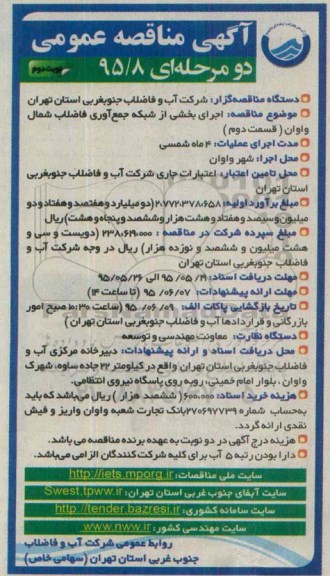 آگهی مناقصه عمومی
دو مرحله‌ای ۹۵/۸
نوبت دوم
دستگاه مناقصه‌گزار: شرکت آب و فاضلاب جنوبغربی استان تهران
موضوع مناقصه: اجرای بخشی از شبکه جمع‌آوری فاضلاب شمال
واوان ( قسمت دوم )
مدت اجرای عملیات: ۴ ماه شمسی
محل اجرا: شهر واوان
محل تامین اعتبار: اعتبارات جاری شرکت آب و فاضلاب جنوبغربی
استان تهران
مبلغ برآورد اولیه: ۲،۷۷۲،۳۷۸،۶۵۸ (دو میلیارد و هفتصد و هفتاد و دو
میلیون و سیصد و هفتاد و هشت هزار و ششصد و پنجاه و هشت) ریال
مبلغ سپرده شرکت در مناقصه : ۲۳۸،۶۱۹،۰۰۰ (دویست و سی و
هشت میلیون و ششصد و نوزده هزار) ریال در وجه شرکت آب و
فاضلاب جنوبغربی استان تهران
مهلت دریافت اسناد: ۹۵/۰۵/۱۹ الی ۹۵/۰۵/۲۶
مهلت ارائه پیشنهادات: ۹۵/۰۶/۰۷ (تا ساعت ۱۴)
تاریخ بازگشایی پاکات الف: ۹۵/۰۶/۰۹ (ساعت ۱۰:۳۰ صبح امور
بازرگانی و قراردادها آب و فاضلاب جنوبغربی استان تهران )
دستگاه نظارت: معاونت مهندسی و توسعه
محل دریافت اسناد و ارائه پیشنهادات: دبیرخانه مرکزی آب و
فاضلاب جنوبغربی استان تهران واقع در کیلومتر ۲۲ جاده ساوه، شهرک
واوان ، بلوار امام خمینی، روبه روی پاسگاه نیروی انتظامی.
هزینه خرید اسناد: ۶۰۰،۰۰۰( ششصد هزار ) ریال می‌باشد که باید
به‌حساب شماره ۲۷۰۶۹۷۷۳۹ بانک تجارت شعبه واوان واریز و فیش
نقدی ارائه گردد.
هزینه درج آگهی در دو نوبت به عهده برنده مناقصه می باشد.
دارا بودن رتبه ۵ آب برای کلیه شرکت کنندگان الزامی می‌باشد.
سایت ملی مناقصات: http://iets.mporg.ir
سایت آبفای جنوب غربی استان تهران: Swest.tpww.ir
سایت سامانه کشوری: http://tender.bazresi.ir
سایت مهندسی کشور: www.nww.ir
روابط عمومی شرکت آب و فاضلاب
جنوب غربی استان تهران (سهامی خاص)